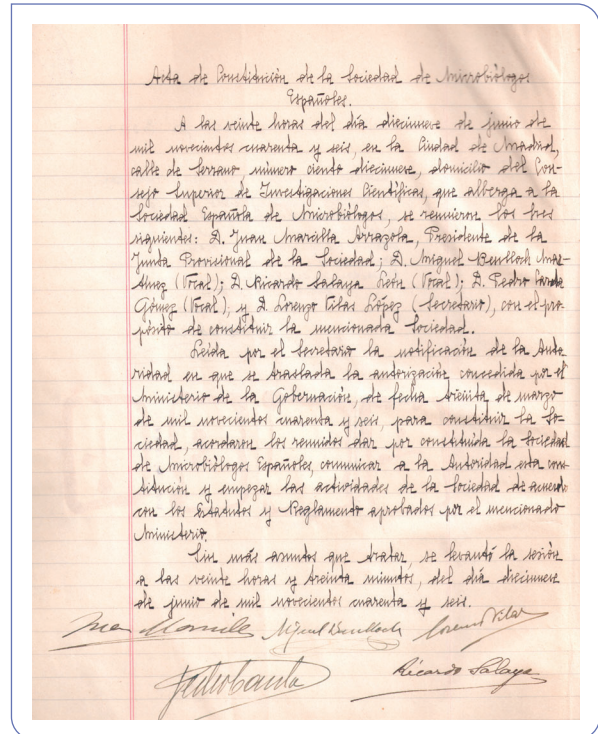 Acta de Constitución de la Sociedad de Microbiólogos
Españoles.
A las veinte horas del día diecinueve de junio de
mil novecientos cuarenta y seis, en la Ciudad de Madrid,
calle de Serrano, número ciento diecinueve, domicilio del Con-
sejo Superior de Investigaciones Científicas, que alberga a la
Sociedad Española de Microbiólogos, se reunieron los Sres
siguientes: D. Juan Marcilla Arrazola, Presidente de la
Junta Provisional de la Sociedad; D. Miguel Benlloch Mar-
tínez (Vocal); D. Ricardo Salaya León (Vocal); D. Pedro Carda
Gómez (Vocal), y D. Lorenzo Vilas López (Secretario), con el pro-
pósito de constituir la mencionada Sociedad.
Leída por el Secretario la notificación de la Auto-
ridad en que se traslada la autorización concedida por el
Ministerio de la Gobernación, de fecha treinta de marzo
de mil novecientos cuarenta y seis, para constituir la So-
ciedad, acordaron los reunidos dar por constituida la Sociedad
de Microbiólogos Españoles, comunicar a la Autoridad esta cons-
titución y empezar las actividades de la Sociedad de acuerdo
con los Estatutos y Reglamento aprobados por el mencionado
Ministerio.
Sin más asuntos que tratar, se levantó la sesión
a las veinte horas y treinta minutos, del día diecinueve
de junio de mil novecientos cuarenta y seis.
Juan Marcilla Miguel Benlloch Lorenzo Vilas
Pedro Carda Ricardo Salaya